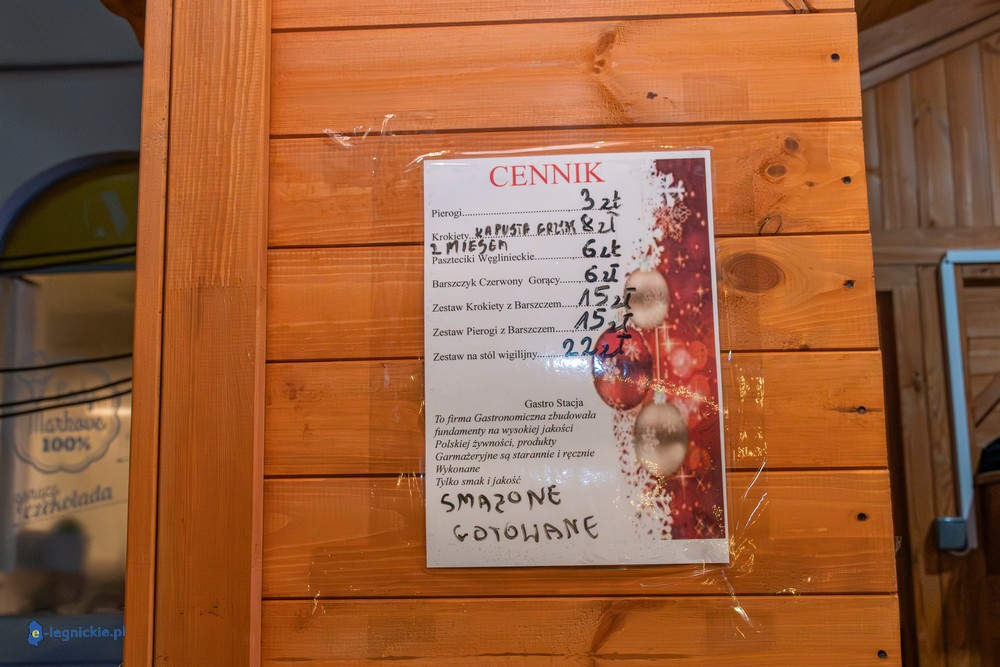 CENNIK
Pierogi........................................3 zł
Krokiety..KAPUSTA GRZYB 8 zł
Z MIĘSEM
Paszteciki Węglinieckie...............6 zł
Barszczyk Czerwony Gorący........6 zł
Zestaw Krokiety z Barszczem.....15 zł
Zestaw Pierogi z Barszczem........15 zł
Zestaw na stól wigilijny...........22 zł
Gastro Stacja
To firma Gastronomiczna zbudowała
fundamenty na wysokiej jakości
Polskiej żywności, produkty
Garmażeryjne są starannie i ręcznie
Wykonane
Tylko smak i jakość
SMAŻONE
GOTOWANE
Markowe
100%
gorąca
czekolada
e-legnickie.pl